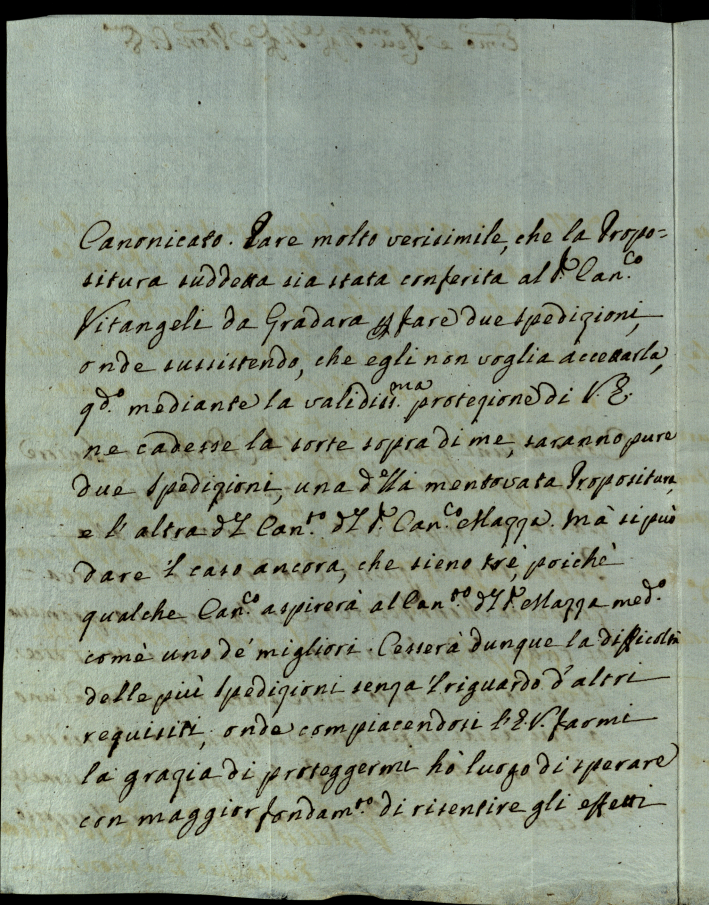 Canonicato. Pare molto verisimile, che la Propo=
situra suddetta sia stata conferita al Sr. Can.co
Vitangeli da Gradara p fare due spedizioni,
onde sussistendo, che egli non voglia accettarla,
qdo. mediante la validiss.ma protezione di V.E.
ne cadesse la sorte sopra di me, saranno pure
due spedizioni, una della mentovata Propositura,
e l'altra dl Can.to dl Sr. Can.co Mazza. Mà si può
dare 'l caso ancora, che sieno trè, poichè
qualche Can.co aspirerà al Can.to dl Sr. Mazza med.o
come uno de' migliori. Cesserà dunque la difficoltà
delle più spedizioni senza 'l riguardo d'altri
requisiti, onde compiacendosi l'E.V. farmi
la grazia di proteggermi hò luogo di sperare
con maggior fondam.to di risentire gli effetti